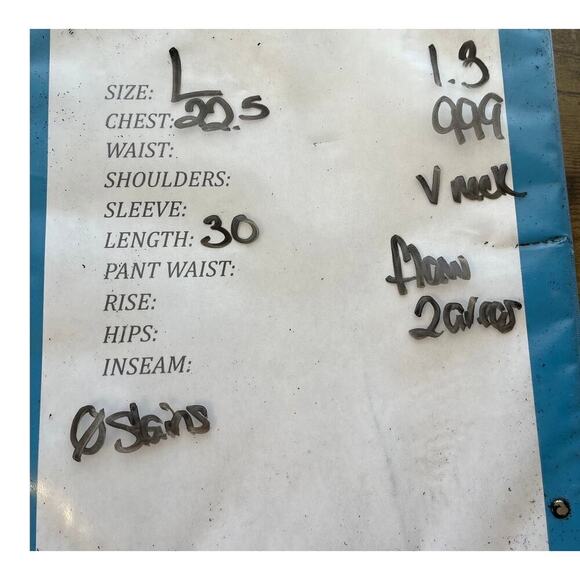 SIZE: L
CHEST: 22.5
WAIST:
SHOULDERS:
SLEEVE:
LENGTH: 30
PANT WAIST:
RISE:
HIPS:
INSEAM:
Ø Stains
1.3
999
V neck
flaw
2